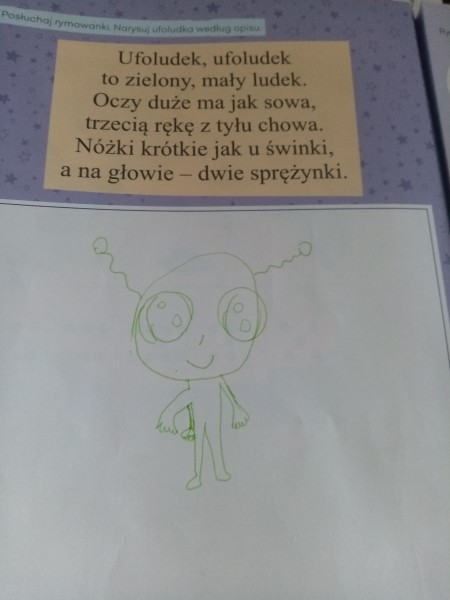 Posłuchaj rymowanki. Narysuj ufoludka według opisu.
Ufoludek, ufoludek
to zielony, mały ludek.
Oczy duże ma jak sowa,
trzecią rękę z tyłu chowa.
Nóżki krótkie jak u świnki,
a na głowie – dwie sprężynki.